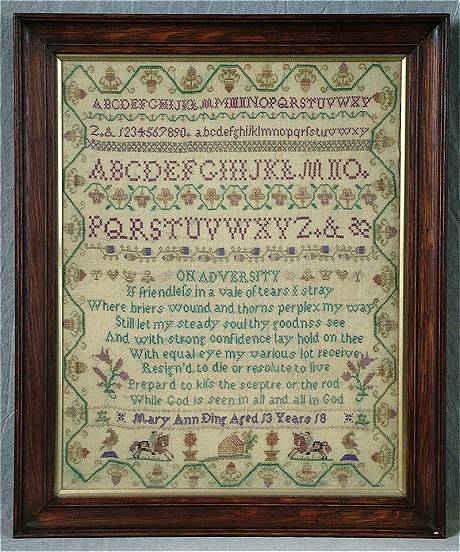 ABCDEFGHIJKLMNOPQRSTUVWXY
Z.& 1234567890. abcdefghijklmnopqrstuvwxy
ABCDEFGHIJKLMNO.
PQRSTUVWXYZ.& &
ON ADVERSITY
If friendleſs in a vale of tears I stray
Where briers wound and thorns perplex my way
Still let my steady soul thy goodnss see
And with strong confidence lay hold on thee
With equal eye my various lot receive
Resign'd to die or resolute to live
Prepar'd to kiſs the sceptre or the rod
While God is seen in all and all in God
Mary Ann Ding Aged 13 Years 18